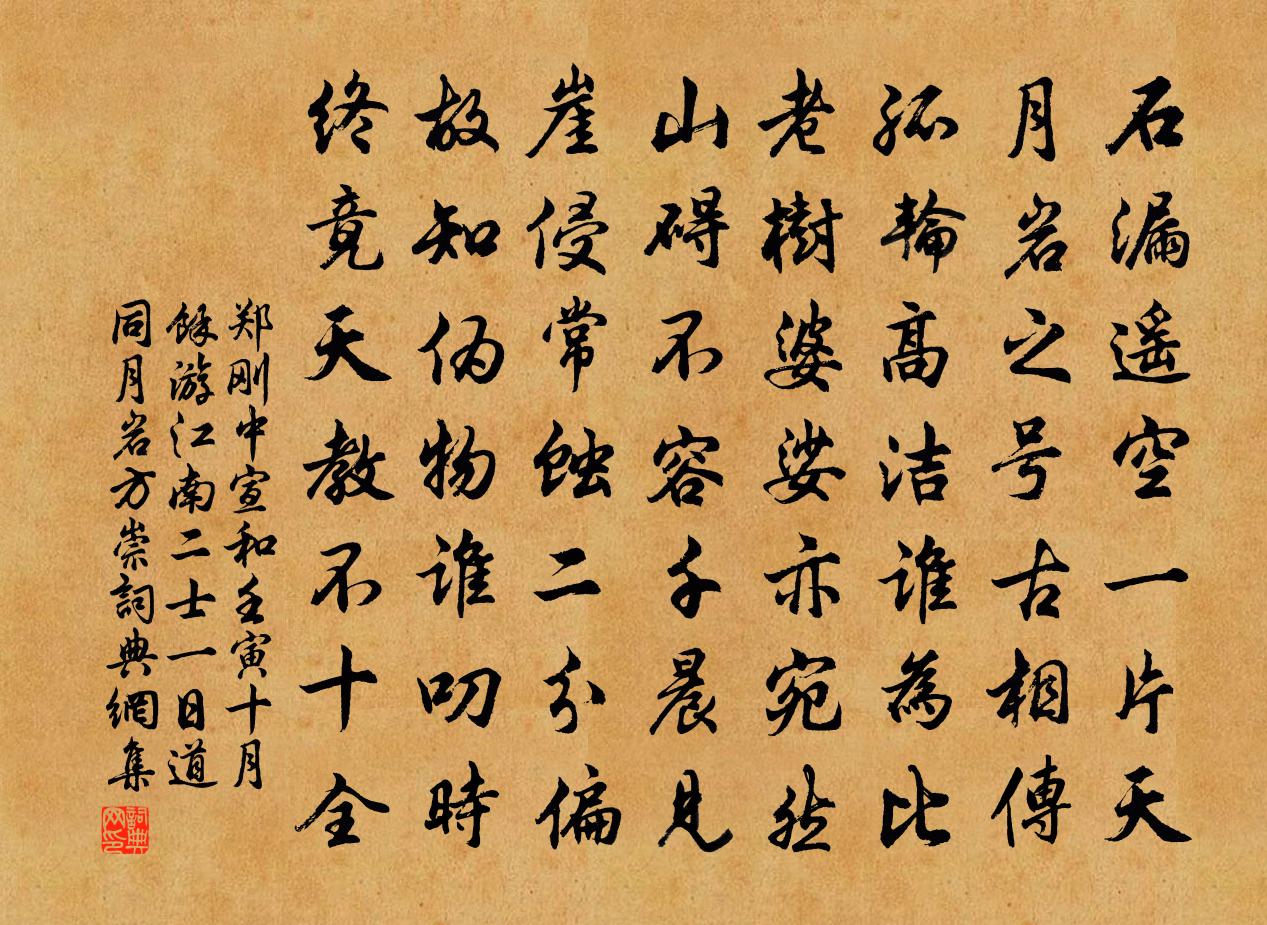 石漏遥空一片天
月岩之号古相傳
孤輪高洁谁為比
老樹婆娑亦宛然
山碍不容千晨見
崖侵常蚀二分偏
故知伪物谁叨時
终竟天教不十全
郑刚中宣和壬寅十月
餘游江南二士一日道
同月岩方崇詞典網集
詞典网印